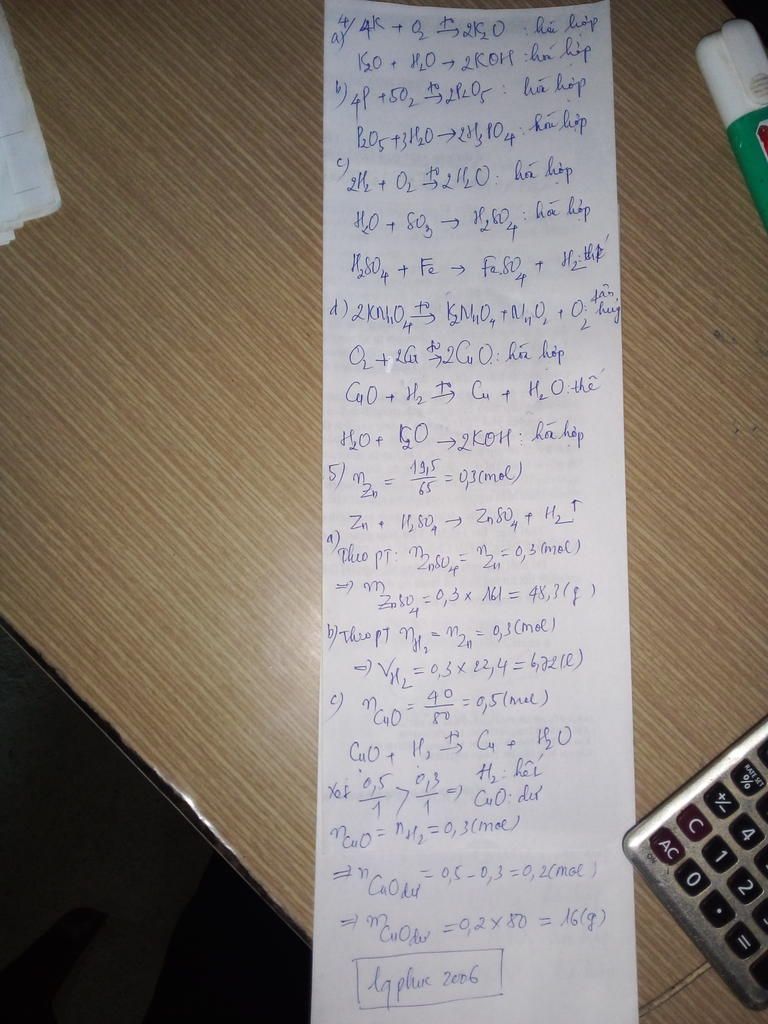 4/
a) 4K + O₂ →(t°) 2K₂O : hóa hợp
K₂O + H₂O → 2KOH : hóa hợp
b) 4P + 5O₂ →(t°) 2P₂O₅ : hóa hợp
P₂O₅ + 3H₂O → 2H₃PO₄ : hóa hợp
c) 2H₂ + O₂ →(t°) 2H₂O : hóa hợp
H₂O + SO₃ → H₂SO₄ : hóa hợp
H₂SO₄ + Fe → FeSO₄ + H₂ : thế
d) 2KMnO₄ →(t°) K₂MnO₄ + MnO₂ + O₂ : phân hủy
O₂ + 2Cu →(t°) 2CuO : hóa hợp
CuO + H₂ →(t°) Cu + H₂O : thế
H₂O + K₂O → 2KOH : hóa hợp
5) n_Zn = 19,5/65 = 0,3 (mol)
Zn + H₂SO₄ → ZnSO₄ + H₂↑
a) Theo pt : n_ZnSO₄ = n_Zn = 0,3 (mol)
=> m_ZnSO₄ = 0,3 x 161 = 48,3 (g)
b) Theo pt n_H₂ = n_Zn = 0,3 (mol)
=> V_H₂ = 0,3 x 22,4 = 6,72 (l)
c) n_CuO = 40/80 = 0,5 (mol)
CuO + H₂ →(t°) Cu + H₂O
Xét 0,5/1 > 0,3/1 => H₂ : hết
CuO : dư
n_CuO = n_H₂ = 0,3 (mol)
=> n_CuO dư = 0,5 - 0,3 = 0,2 (mol)
=> m_CuO dư = 0,2 x 80 = 16 (g)
lqphuc 2006
RATE SET
%
+/-
C
4
ON
AC
1
0
2
•
=